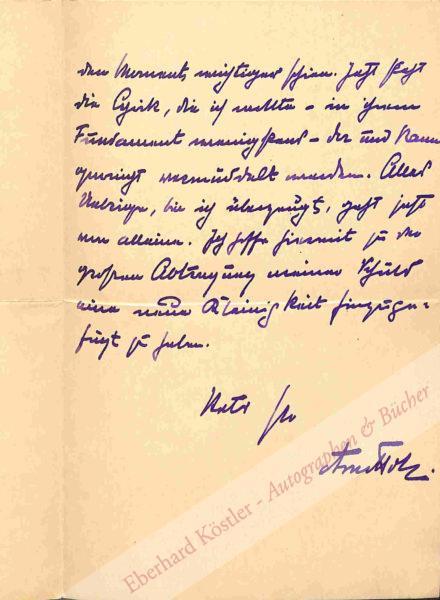 den Moment, wichtiger schien. Jetzt steht
die Lyrik, die ich wollte – in ihrem
Fundament wenigstens – da und kann
werden. Alles
Uebrige, bin ich überzeugt, geht jetzt
von alleine. Ich hoffe hiermit zu der
großen Abtragung meiner Schuld
eine neue Kleinigkeit hinzuge-
fügt zu haben.
Stets Ihr
Arno Holz.
Eberhard Köstler - Autographen & Bücher